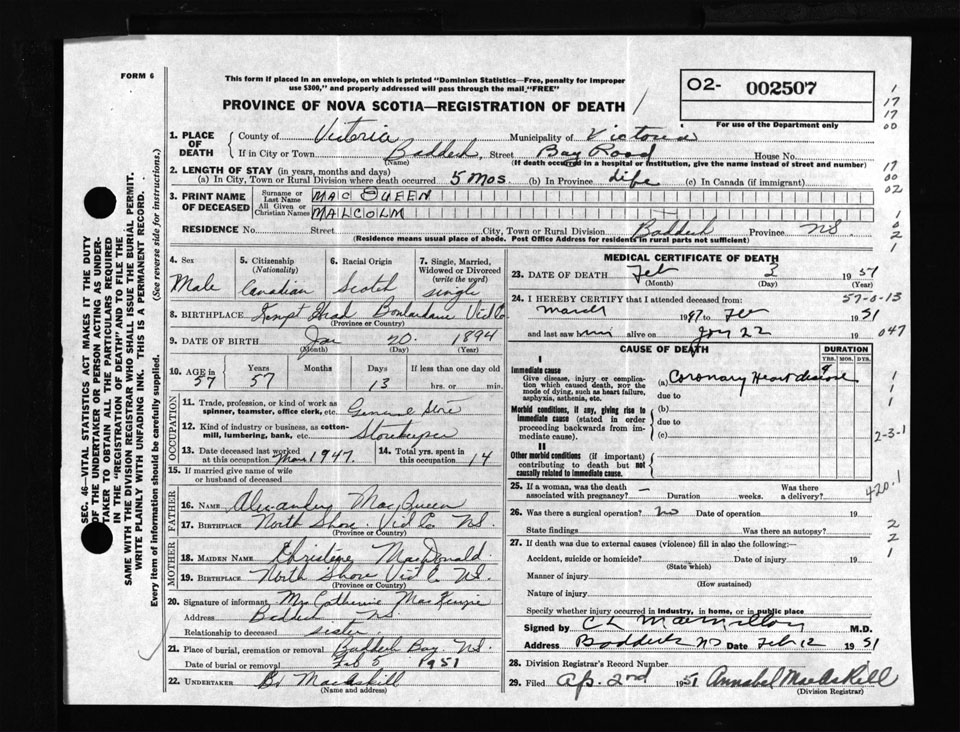 FORM 6
This form if placed in an envelope, on which is printed "Dominion Statistics—Free, penalty for improper
use $300," and properly addressed will pass through the mail "FREE"
PROVINCE OF NOVA SCOTIA—REGISTRATION OF DEATH
O2- 002507
For use of the Department only
1. PLACE OF DEATH { County of Victoria Municipality of Victoria
If in City or Town Baddeck, Street Bay Road House No.
(Name) (If death occurred in a hospital or institution, give the name instead of street and number)
2. LENGTH OF STAY (in years, months and days)
(a) In City, Town or Rural Division where death occurred 5 Mos. (b) In Province Life (c) In Canada (if immigrant)
3. PRINT NAME OF DECEASED { Surname or Last Name MAC QUEEN
All Given or Christian Names MALCOLM
RESIDENCE No. Street City, Town or Rural Division Baddeck Province N.S.
(Residence means usual place of abode. Post Office Address for residents in rural parts not sufficient)
4. Sex Male
5. Citizenship (Nationality) Canadian
6. Racial Origin Scotch
7. Single, Married, Widowed or Divorced (write the word) single
8. BIRTHPLACE Kempt Head Boulardarie Vic Co.
(Province or Country)
9. DATE OF BIRTH Jan 20. 1894
(Month) (Day) (Year)
10. AGE in 57 Years 57 Months Days 13 If less than one day old hrs. or min.
OCCUPATION
11. Trade, profession, or kind of work as
spinner, teamster, office clerk, etc. General Store
12. Kind of industry or business, as cotton-
mill, lumbering, bank, etc. Storekeeper
13. Date deceased last worked
at this occupation Mar. 1947.
14. Total yrs. spent in
this occupation 14
15. If married give name of wife
or husband of deceased
FATHER
16. NAME Alexander MacQueen
17. BIRTHPLACE North Shore Vic Co N.S.
(Province or Country)
MOTHER
18. MAIDEN NAME Christine MacDonald
19. BIRTHPLACE North Shore Vic Co N.S.
(Province or Country)
20. Signature of informant Mrs Catherine MacKenzie
Address Baddeck N.S.
Relationship to deceased sister.
21. Place of burial, cremation or removal Baddeck Bay N.S.
Date of burial or removal Feb 5 1951
22. UNDERTAKER MacAskill
(Name and address)
MEDICAL CERTIFICATE OF DEATH
23. DATE OF DEATH Feb 3 1951
(Month) (Day) (Year)
57-0-13
24. I HEREBY CERTIFY that I attended deceased from:
March 1947 to Feb 1951
and last saw him alive on Jany 22 19
047
CAUSE OF DEATH
DURATION
YRS. MOS. DYS.
I
Immediate cause
Give disease, injury or complication which caused death, not the mode of dying, such as heart failure, asphyxia, asthenia, etc.
(a) Coronary Heart disease
due to
Morbid conditions, if any, giving rise to immediate cause (stated in order proceeding backwards from immediate cause).
(b)
due to
(c)
2-3-1
II
Other morbid conditions (if important) contributing to death but not causally related to immediate cause.
420.1
25. If a woman, was the death
associated with pregnancy? — Duration weeks. Was there a delivery?
26. Was there a surgical operation? no Date of operation 19
State findings Was there an autopsy?
27. If death was due to external causes (violence) fill in also the following:—
Accident, suicide or homicide? Date of injury 19
(State which)
Manner of injury
(How sustained)
Nature of injury
Specify whether injury occurred in industry, in home, or in public place
Signed by C L MacMillan M.D.
Address Baddeck NS Date Feb 12 1951
28. Division Registrar's Record Number
29. Filed Ap. 2nd 1951 Annabel MacAskill
(Division Registrar)
SEC. 46—VITAL STATISTICS ACT MAKES IT THE DUTY
OF THE UNDERTAKER OR PERSON ACTING AS UNDER-
TAKER TO OBTAIN ALL THE PARTICULARS REQUIRED
IN THE "REGISTRATION OF DEATH" AND TO FILE THE
SAME WITH THE DIVISION REGISTRAR WHO SHALL ISSUE THE BURIAL PERMIT.
WRITE PLAINLY WITH UNFADING INK. THIS IS A PERMANENT RECORD.
Every item of information should be carefully supplied. (See reverse side for instructions.)
1
17
17
00
17
00
02
1
0
2
1
1
1
1
2
2
1